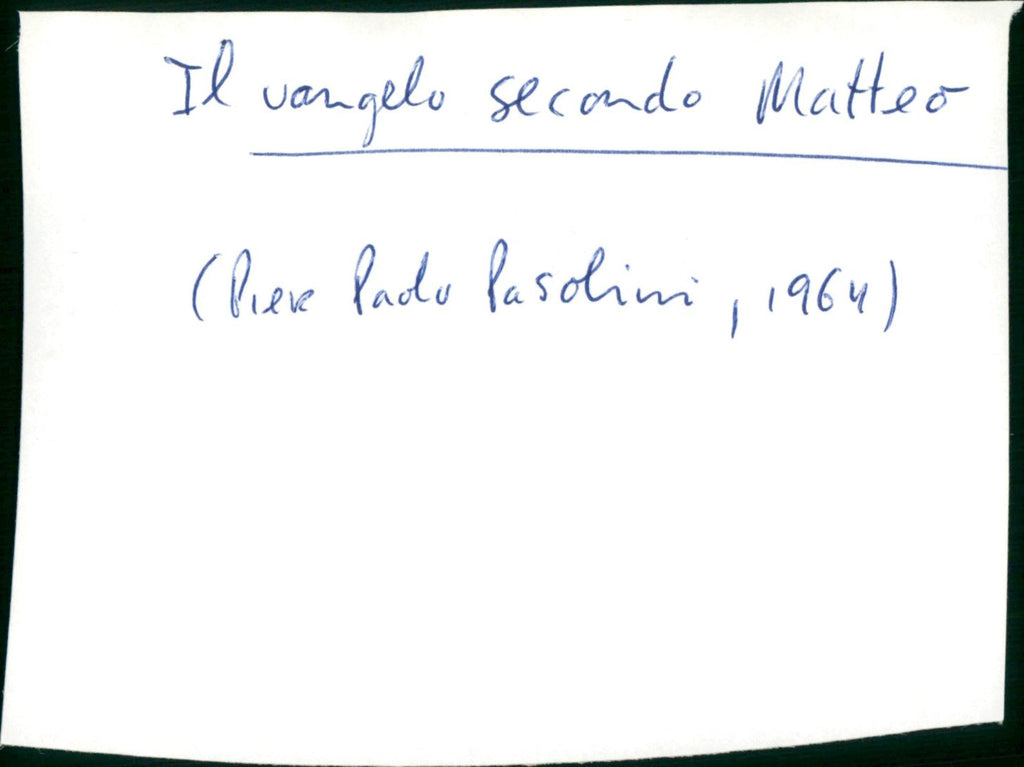 Il vangelo secondo Matteo
(Pier Paolo Pasolini, 1964)